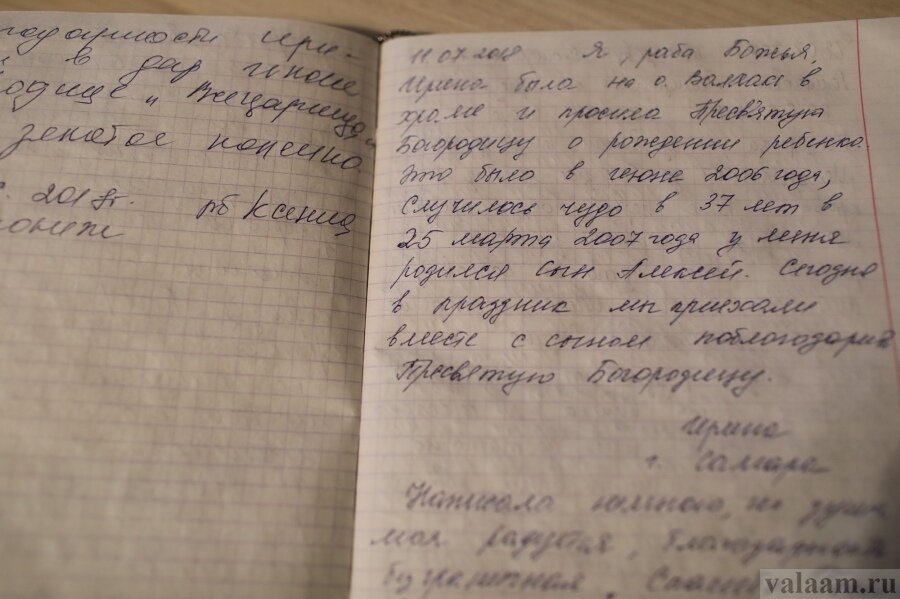 в дар иконе
"Всецарица"
золотое колечко.
2018г. рб Ксения
11.07.2018 Я, раба Божья,
Ирина была на о. Валаам в
храме и просила Пресвятую
Богородицу о рождении ребенка.
Это было в июне 2006 года,
случилось чудо в 37 лет в
25 марта 2007 года у меня
родился сын Алексей. Сегодня
в праздник мы приехали
вместе с сыном поблагодарить
Пресвятую Богородицу.
Ирина
г. Самара
Написала немного, но душа
моя радуется, благодарность
безграничная.
valaam.ru